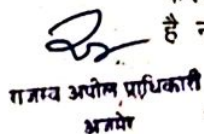 है न
राजस्व अपील प्राधिकारी
अजमेर